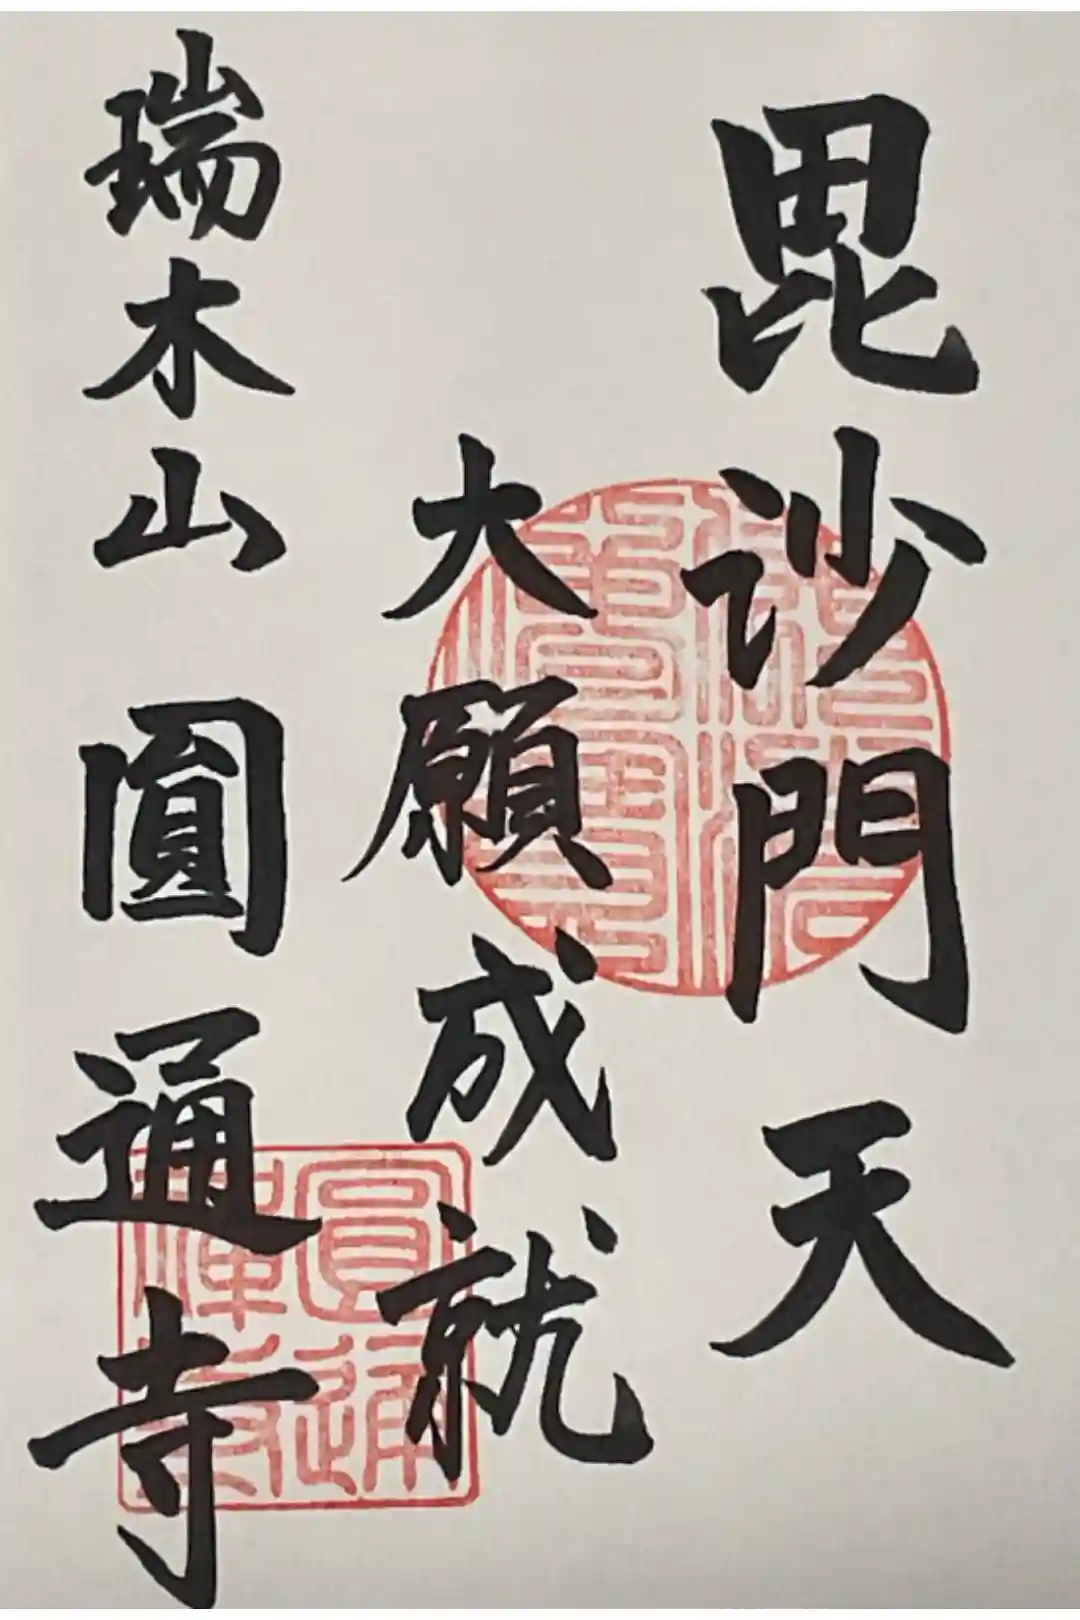 毘沙門天
大願成就
瑞木山 圓通寺
圓通
禅寺